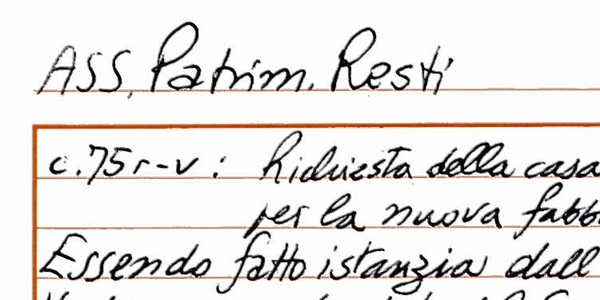 ASS. Patrim. Resti
c. 75 r-v : Richiesta della casa
per la nuova fabb
Essendo fatto istanzia dall